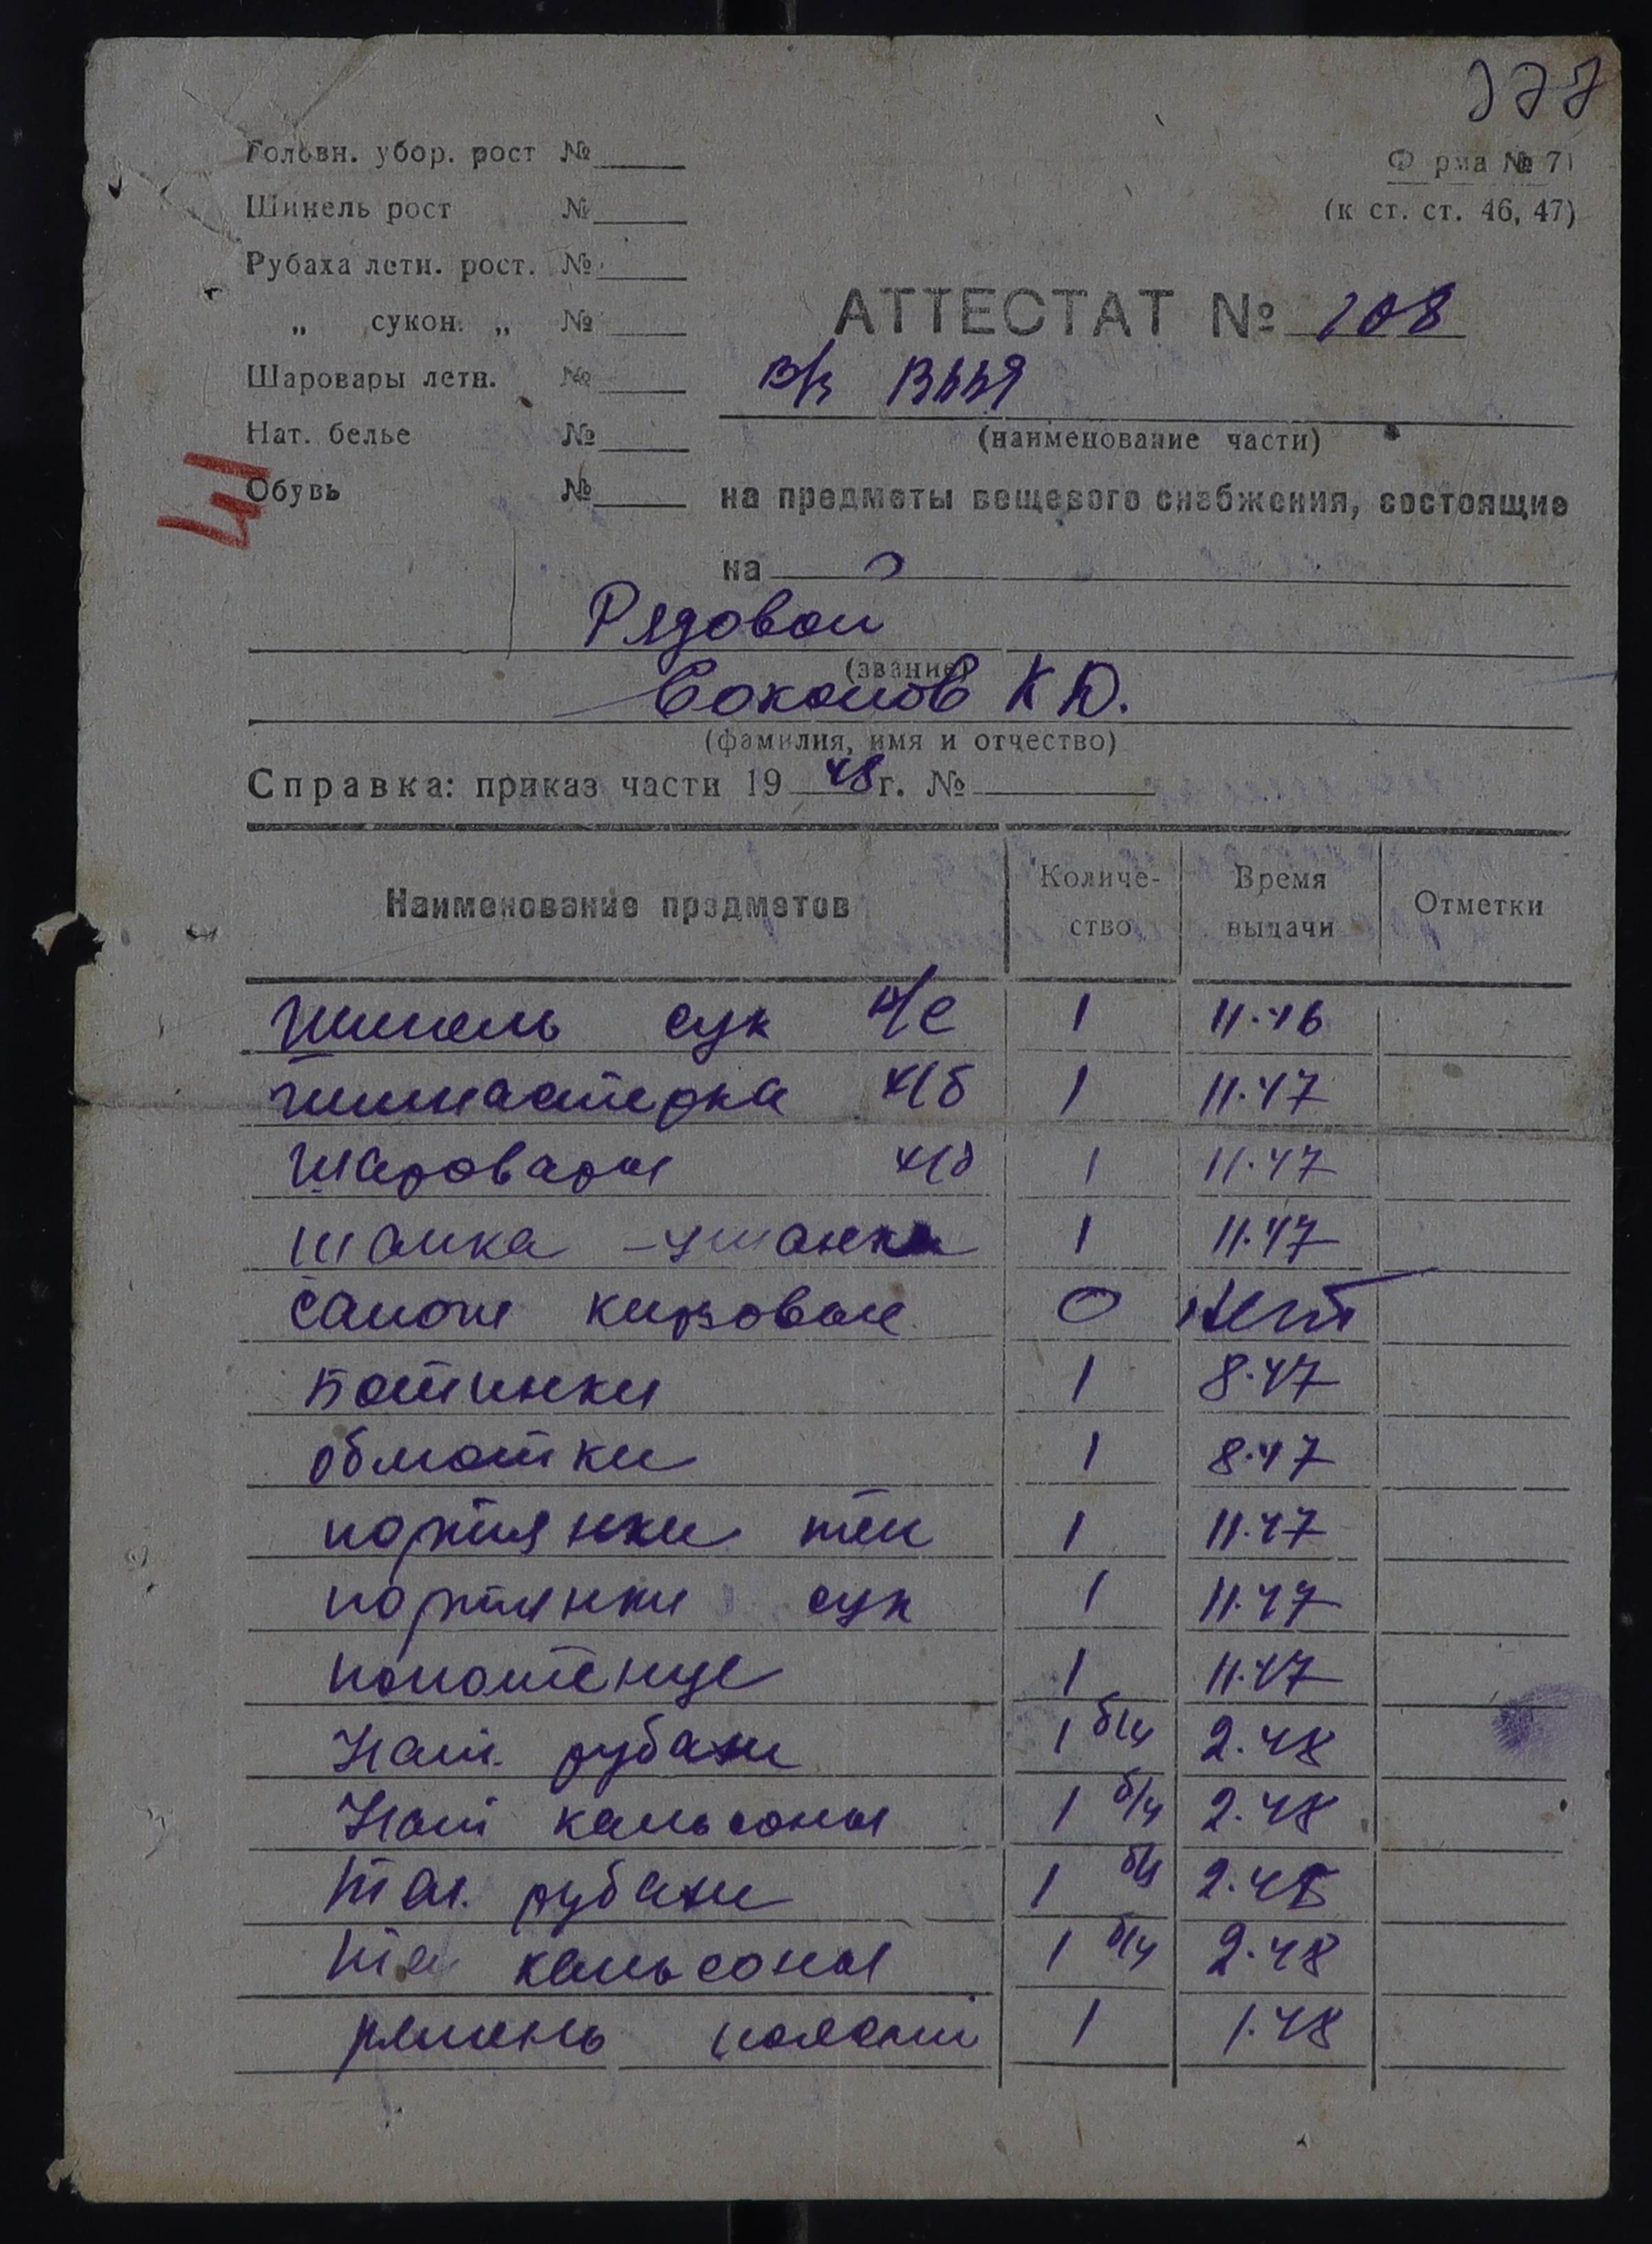 377
Головн. убор. рост №
Форма № 71
Шинель рост №
(к ст. ст. 46, 47)
Рубаха летн. рост. №
„ сукон. „ №
АТТЕСТАТ № 108
Шаровары летн. №
в/ч
Нат. белье №
(наименование части)
Обувь №
на предметы вещевого снабжения, состоящие
на
Рядовой
(звание)
Соколов К Ю.
(фамилия, имя и отчество)
Справка: приказ части 19 48 г. №
Наименование предметов Количе-ство Время выдачи Отметки
Шинель сук 1 11.46
гимнастерка х/б 1 11.47
Шаровары х/б 1 11.47
шапка-ушанка 1 11.47
сапоги кирзовые 0 нет
Ботинки 1 8.47
обмотки 1 8.47
портянки 1 11.47
портянки сук 1 11.47
полотенце 1 11.47
Нат. рубахи 1 б/у 2.48
Нат кальсоны 1 б/у 2.48
рубахи 1 б/у 2.48
кальсоны 1 б/у 2.48
ремень поясной 1 1.48